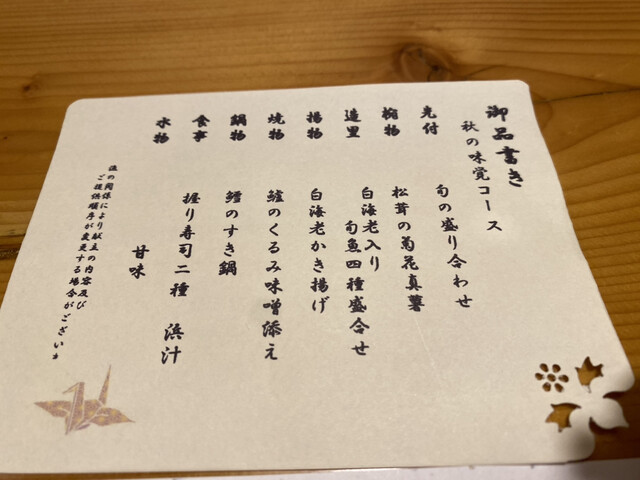 御品書き
秋の味覚コース
先付 旬の盛り合わせ
椀物 松茸の菊花真薯
造里 白海老入り
旬魚四種盛合せ
揚物 白海老かき揚げ
焼物 鱸のくるみ味噌添え
鍋物 鱈のすき鍋
食事 握り寿司二種 浜汁
水物 甘味
の関係により献立の内容及び
ご提供順序が変更する場合がございま